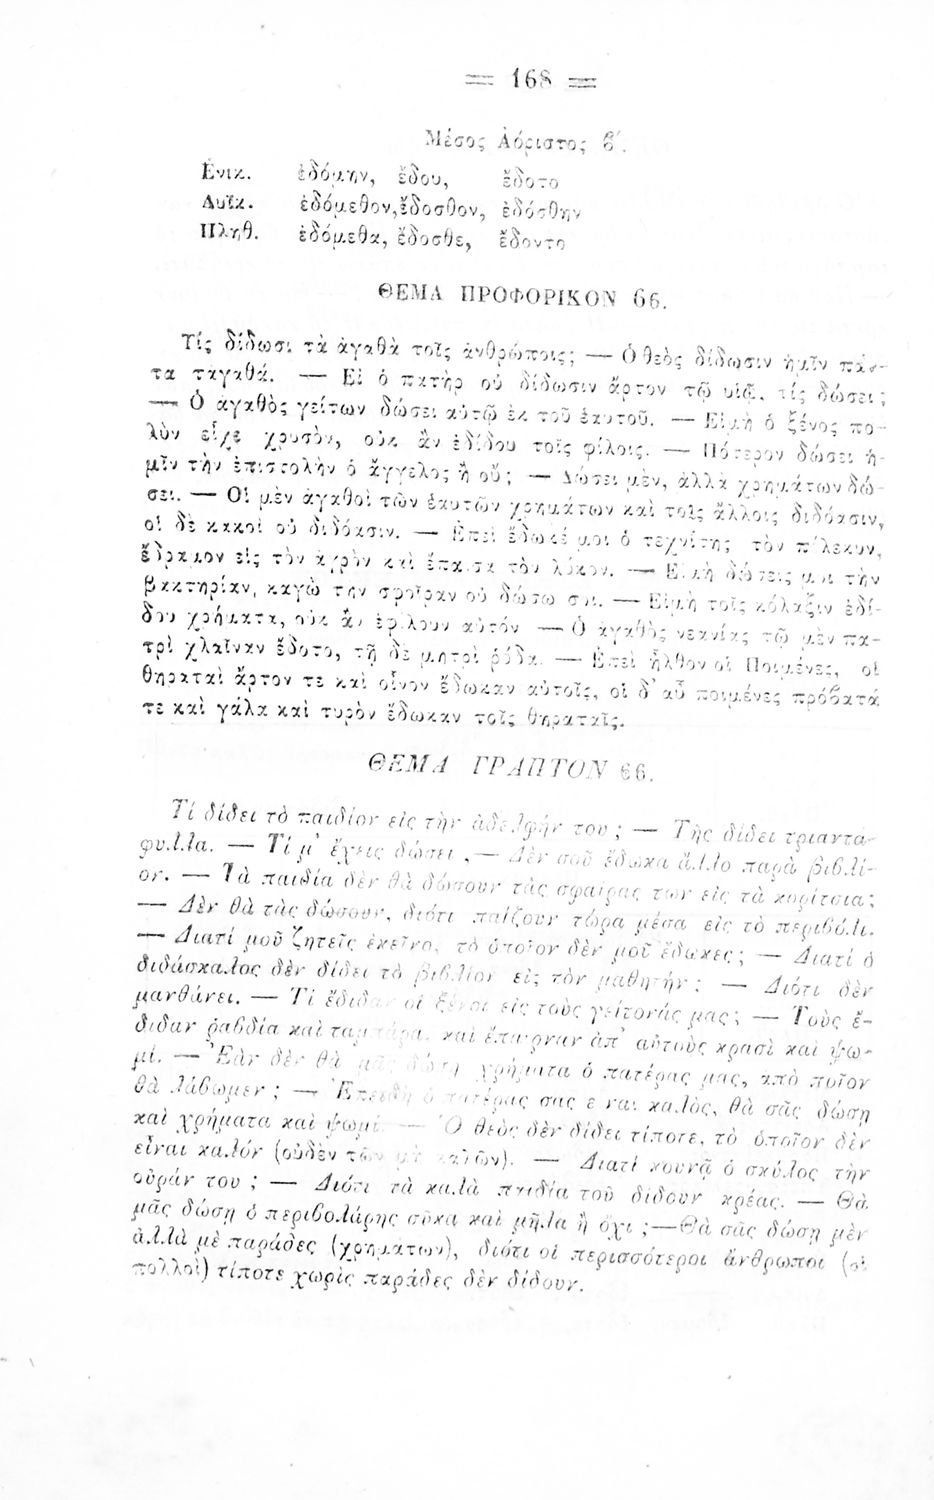 = 168 =
Μέσος Ἀόριστος β΄.
Ἑνικ. ἐδόμην, ἔδου, ἔδοτο
Δυϊκ. ἐδόμεθον, ἔδοσθον, ἐδόσθην
Πληθ. ἐδόμεθα, ἔδοσθε, ἔδοντο
ΘΕΜΑ ΠΡΟΦΟΡΙΚΟΝ 66.
Τίς δίδωσι τὰ ἀγαθὰ τοῖς ἀνθρώποις; — Ὁ θεὸς δίδωσιν ἡμῖν πάν-
τα τἀγαθά. — Εἰ ὁ πατὴρ οὐ δίδωσιν ἄρτον τῷ υἱῷ, τίς δώσει;
— Ὁ ἀγαθὸς γείτων δώσει αὐτῷ ἐκ τοῦ ἑαυτοῦ. — Εἰ μὴ ὁ ξένος πο-
λὺν εἶχε χρυσὸν, οὐκ ἂν ἐδίδου τοῖς φίλοις. — Πότερον δώσει ἡ-
μῖν τὴν ἐπιστολὴν ὁ ἄγγελος ἢ οὔ; — Δώσει μὲν, ἀλλὰ χρημάτων δώ-
σει. — Οἱ μὲν ἀγαθοὶ τῶν ἑαυτῶν χρημάτων καὶ τοῖς ἄλλοις διδόασιν,
οἱ δὲ κακοὶ οὐ διδόασιν. — Ἐπεὶ ἔδωκέ μοι ὁ τεχνίτης τὸν πέλεκυν,
ἔδραμον εἰς τὸν ἀγρὸν καὶ ἔπαισα τὸν λύκον. — Εἰ μὴ δώσεις μοι τὴν
βακτηρίαν, κἀγὼ τὴν σφαῖραν οὐ δώσω σοι. — Εἰ μὴ τοῖς κόλαξιν ἐδί-
δου χρήματα, οὐκ ἂν ἐφίλουν αὐτόν — Ὁ ἀγαθὸς νεανίας τῷ μὲν πα-
τρὶ χλαῖναν ἔδοτο, τῇ δὲ μητρὶ ῥόδα. — Ἐπεὶ ἦλθον οἱ Ποιμένες, οἱ
θηραταὶ ἄρτον τε καὶ οἶνον ἔδωκαν αὐτοῖς, οἱ δ᾽ αὖ ποιμένες πρόβατά
τε καὶ γάλα καὶ τυρὸν ἔδωκαν τοῖς θηραταῖς.
ΘΕΜΑ ΓΡΑΠΤΟΝ 66.
Τί δίδει τὸ παιδίον εἰς τὴν ἀδελφήν του; — Τῆς δίδει τριαντά-
φυλλα. — Τί μ᾽ ἔχεις δώσει. — Δὲν σοῦ ἔδωκα ἄλλο παρὰ βιβλί-
ον. — Τὰ παιδία δὲν θὰ δώσουν τὰς σφαίρας των εἰς τὰ κορίτσια;
— Δὲν θὰ τὰς δώσουν, διότι παίζουν τώρα μέσα εἰς τὸ περιβόλι.
— Διατί μοῦ ζητεῖς ἐκεῖνο, τὸ ὁποῖον δὲν μοῦ ἔδωκες; — Διατί ὁ
διδάσκαλος δὲν δίδει τὸ βιβλίον εἰς τὸν μαθητήν; — Διότι δὲν
μανθάνει. — Τί ἔδιδαν οἱ ξένοι εἰς τοὺς γείτονάς μας; — Τοὺς ἔ-
διδαν ῥαβδία καὶ ταμπάρα, καὶ ἔπαιρναν ἀπ᾽ αὐτοὺς κρασὶ καὶ ψω-
μί. — Ἐὰν δὲν θὰ μᾶς δώσῃ χρήματα ὁ πατέρας μας, ἀπὸ ποῖον
θὰ λάβωμεν; — Ἐπειδὴ ὁ πατέρας σας εἶναι καλὸς, θὰ σᾶς δώσῃ
καὶ χρήματα καὶ ψωμί. — Ὁ θεὸς δὲν δίδει τίποτε, τὸ ὁποῖον δὲν
εἶναι καλόν (οὐδὲν τῶν μὴ καλῶν). — Διατί κουνᾷ ὁ σκύλος τὴν
οὐράν του; — Διότι τὰ καλὰ παιδία τοῦ δίδουν κρέας. — Θὰ
μᾶς δώσῃ ὁ περιβολάρης σῦκα καὶ μῆλα ἢ ὄχι; — Θὰ σᾶς δώσῃ μὲν
ἀλλὰ μὲ παράδες (χρημάτων), διότι οἱ περισσότεροι ἄνθρωποι (οἱ
πολλοὶ) τίποτε χωρὶς παράδες δὲν δίδουν.